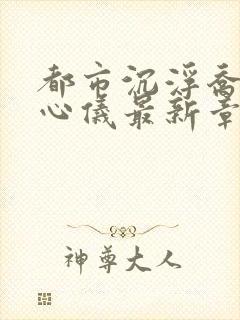 都市沉浮乔
心仪最新章
神尊大人